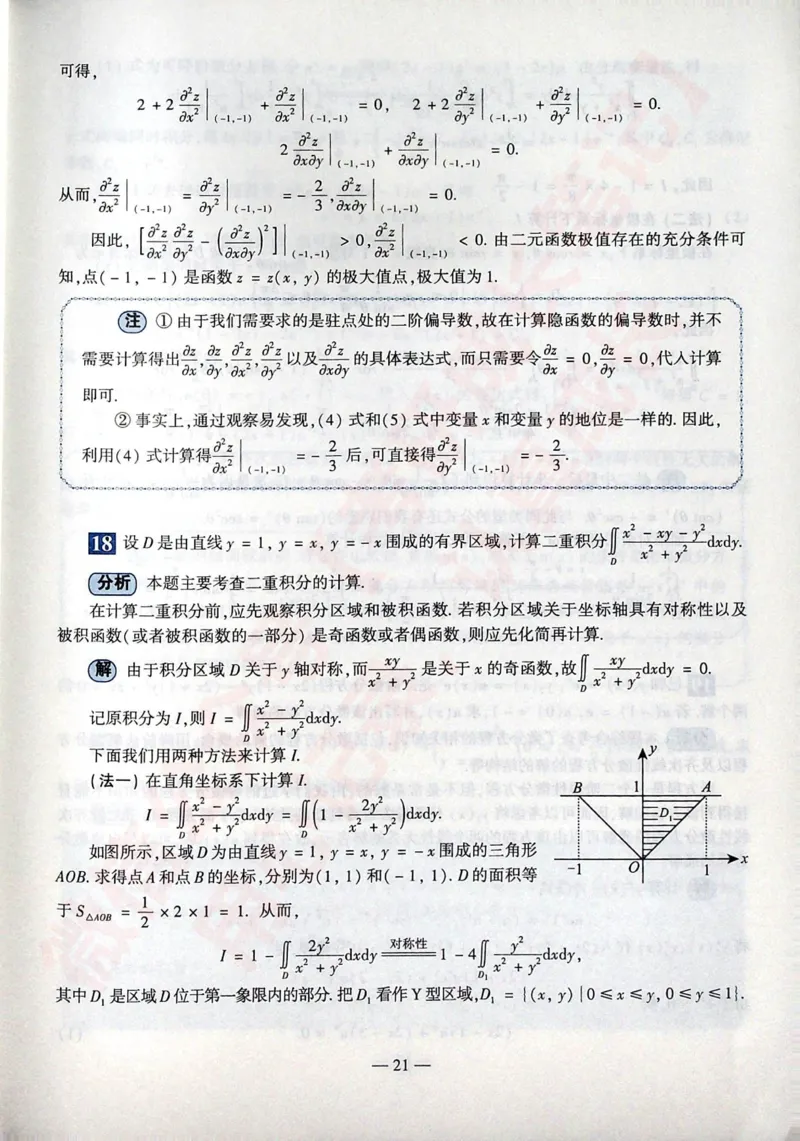 可得,
2 + 2 ∂²z/∂x² |(-1,-1) + ∂²z/∂x² |(-1,-1) = 0, 2 + 2 ∂²z/∂y² |(-1,-1) + ∂²z/∂y² |(-1,-1) = 0.
2 ∂²z/∂x∂y |(-1,-1) + ∂²z/∂x∂y |(-1,-1) = 0.
从而, ∂²z/∂x² |(-1,-1) = ∂²z/∂y² |(-1,-1) = - 2/3, ∂²z/∂x∂y |(-1,-1) = 0.
因此, [∂²z/∂x² ∂²z/∂y² - (∂²z/∂x∂y)²] |(-1,-1) > 0, ∂²z/∂x² |(-1,-1) < 0. 由二元函数极值存在的充分条件可
知,点(-1, -1) 是函数 z = z(x, y) 的极大值点,极大值为 1.
注 ① 由于我们需要求的是驻点处的二阶偏导数,故在计算隐函数的偏导数时,并不
需要计算得出 ∂z/∂x, ∂z/∂y, ∂²z/∂x², ∂²z/∂y² 以及 ∂²z/∂x∂y 的具体表达式,而只需要令 ∂z/∂x = 0, ∂z/∂y = 0,代入计算
即可.
② 事实上,通过观察易发现,(4) 式和(5) 式中变量 x 和变量 y 的地位是一样的. 因此,
利用(4) 式计算得 ∂²z/∂x² |(-1,-1) = - 2/3 后,可直接得 ∂²z/∂y² |(-1,-1) = - 2/3.
18 设 D 是由直线 y = 1, y = x, y = -x 围成的有界区域,计算二重积分 ∬_D (x² - xy - y²)/(x² + y²) dxdy.
分析 本题主要考查二重积分的计算.
在计算二重积分前,应先观察积分区域和被积函数. 若积分区域关于坐标轴具有对称性以及
被积函数(或者被积函数的一部分) 是奇函数或者偶函数,则应先化简再计算.
解 由于积分区域 D 关于 y 轴对称,而 xy/(x² + y²) 是关于 x 的奇函数,故 ∬_D xy/(x² + y²) dxdy = 0.
记原积分为 I,则 I = ∬_D (x² - y²)/(x² + y²) dxdy.
下面我们用两种方法来计算 I.
(法一) 在直角坐标系下计算 I.
I = ∬_D (x² - y²)/(x² + y²) dxdy = ∬_D (1 - 2y²/(x² + y²)) dxdy.
如图所示,区域 D 为由直线 y = 1, y = x, y = -x 围成的三角形
AOB. 求得点 A 和点 B 的坐标,分别为(1, 1) 和(-1, 1). D 的面积等
于 S△AOB = 1/2 × 2 × 1 = 1. 从而,
y
B 1 A
D₁
-1 O 1 x
I = 1 - ∬_D 2y²/(x² + y²) dxdy ══对称性══ 1 - 4∬_D₁ y²/(x² + y²) dxdy,
其中 D₁ 是区域 D 位于第一象限内的部分. 把 D₁ 看作 Y 型区域, D₁ = {(x, y) | 0 ≤ x ≤ y, 0 ≤ y ≤ 1}.
— 21 —